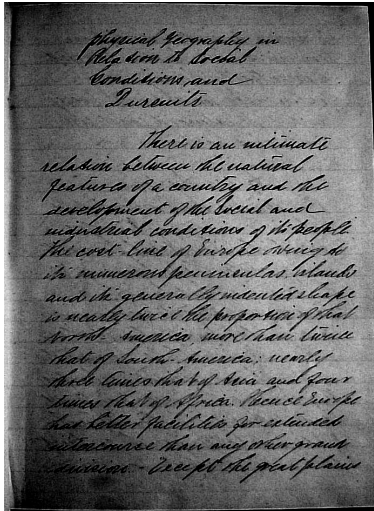 physical, Geography in
Relation to Social
Conditions, and
Pursuits
There is an intimate
relation between the natural
features of a country and the
development of the social and
industrial conditions of its people
The cost-line of Europe owing to
its numerous peninsulas, islands
and its generally indented shape
is nearly twice the proportion of that
North-America, more than twice
that of South-America; nearly
three times that of Asia and four
times that of Africa. Hence Europe
has better facilities for extended
intercourse than any other grand
division - Except the great plains